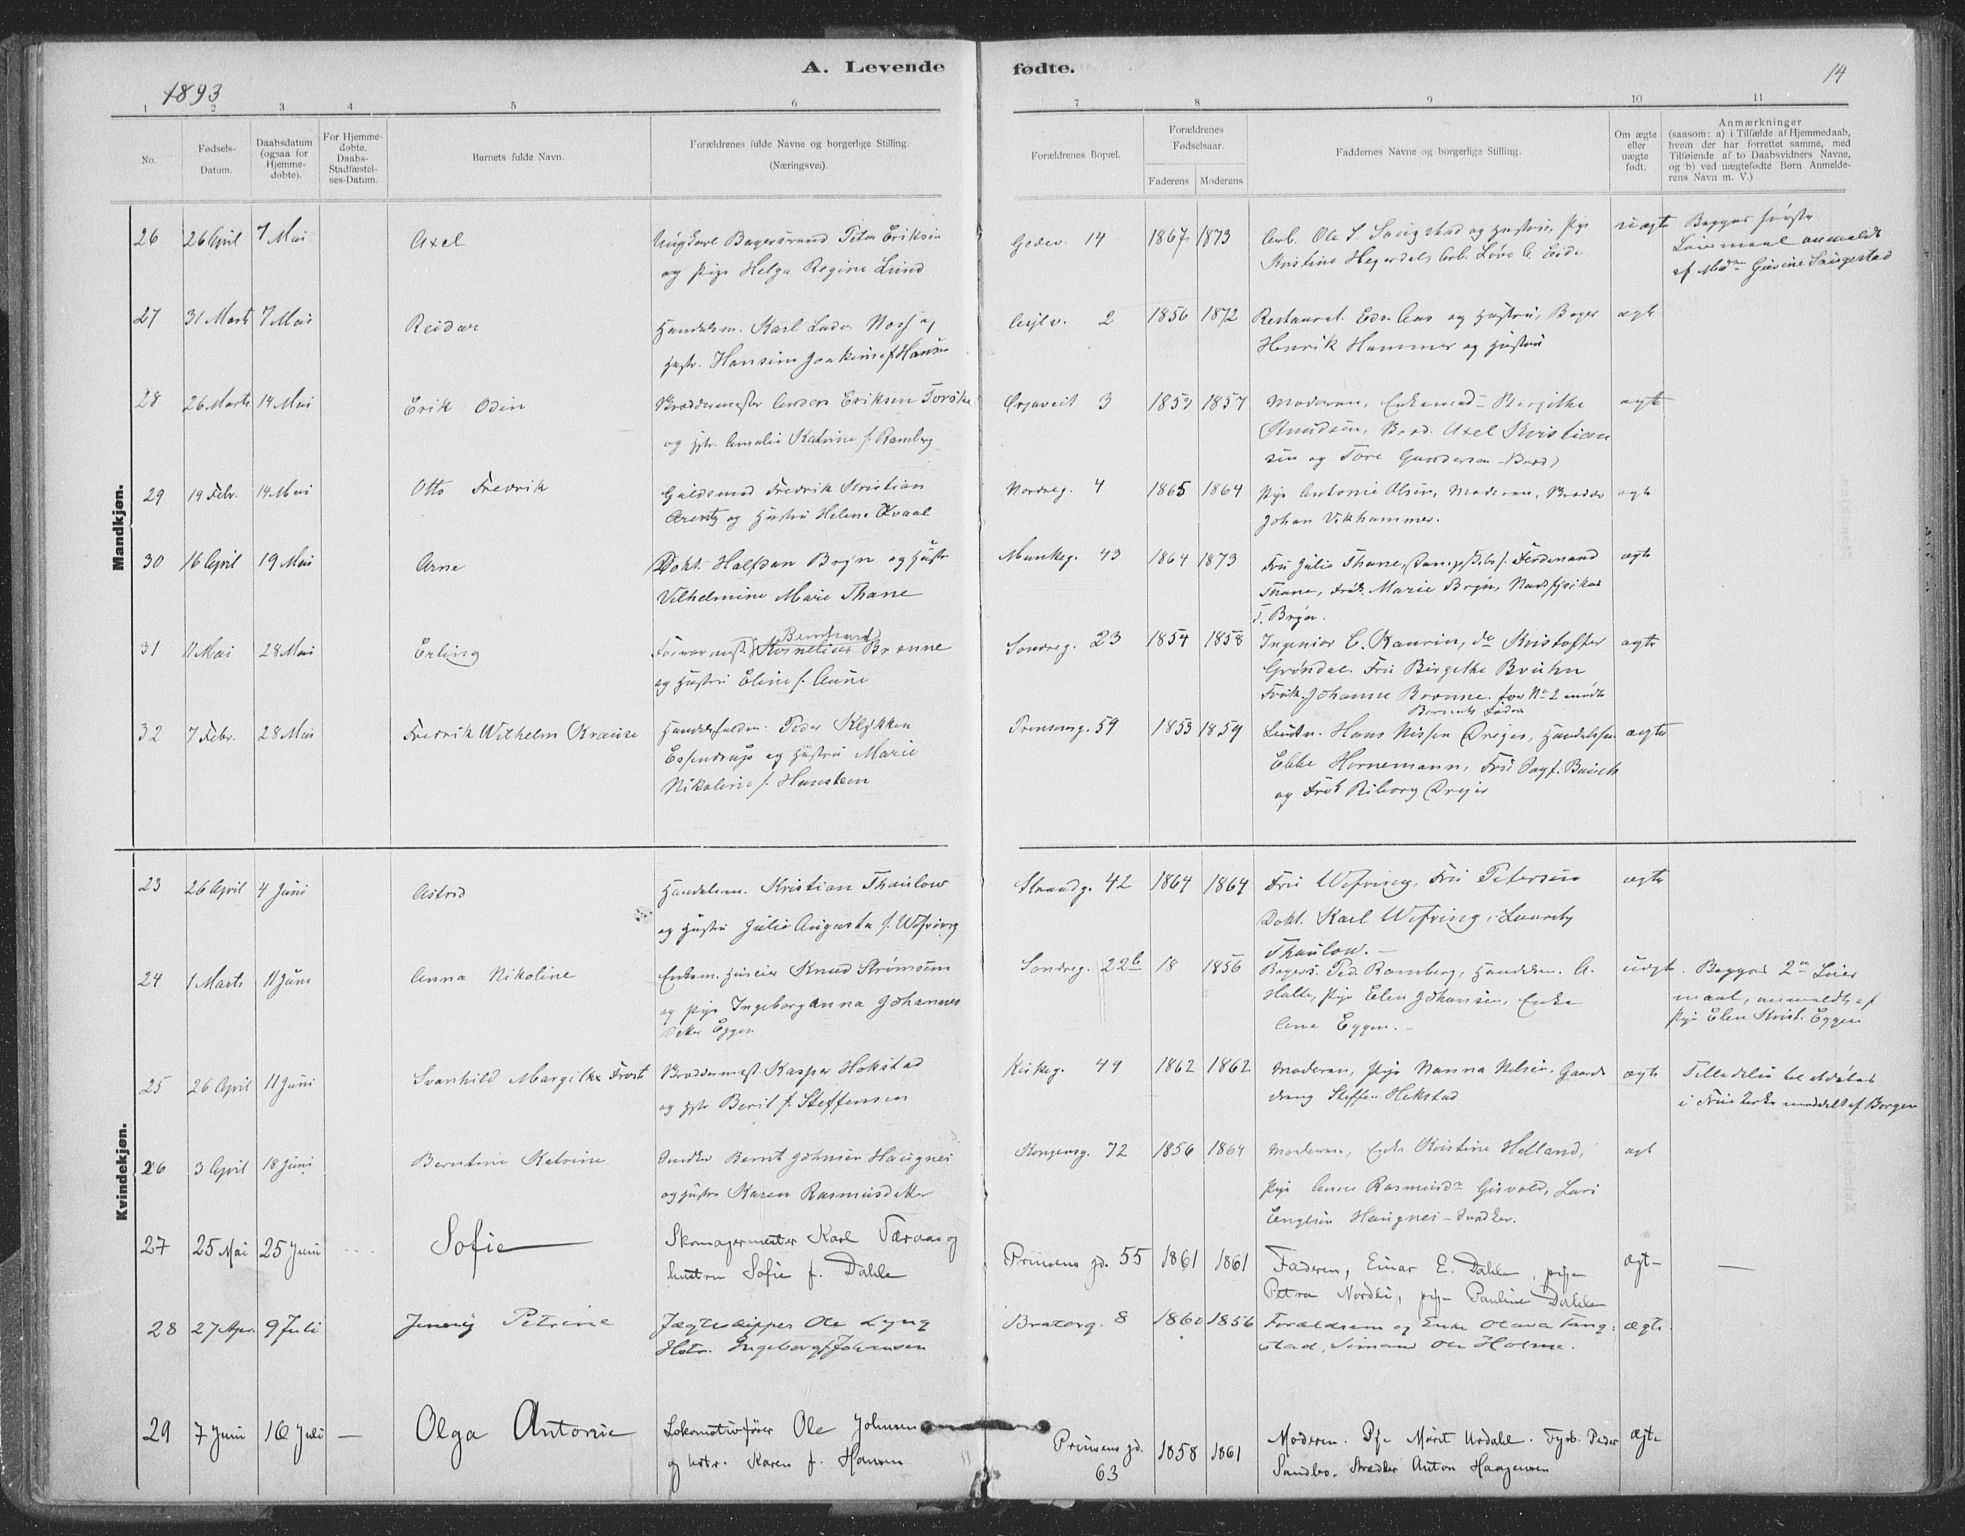 1893
A. Levende fødte.
14
1 2 3 4 5 6 7 8 9 10 11
No.
Fødsels-
Datum.
Daabsdatum
(ogsaa for
Hjemme-
døbte).
For Hjemme-
døbte.
Daabs-
Stadfæstel-
ses-Datum.
Barnets fulde Navn.
Forældrenes fulde Navne og borgerlige Stilling.
(Næringsvei).
Forældrenes Bopæl.
Forældrenes
Fødselsaar.
Faderens Moderens
Faddernes Navne og borgerlige Stilling.
Om ægte
eller
uægte
født.
Anmærkninger
(sansom: a) i Tilfælde af Hjemmedaab,
hvem der har forrettet samme, med
Tilføiende af to Daabsvidners Navne,
og b) ved uægtefødte Børn Anmelde-
rens Navn m. V.)
Mandkjøn.
26 26 April 7 Mai Axel
Ungkarl Bagersvend Peter Eriksen
og Pige Helga Regine Lund
14 1867 1873
Arb. Ole S. og Hustru, Pige
Kristine arb. Eide
uægte
Begges første
Leiermaal anmeldt
af
27 31 Marts 7 Mai Reidar
Handelsm. Karl og
Hustr.
2 1856 1872
Restaurat. Edv. Aas og Hustru, Bager
Henrik Hammer og Hustru
ægte
28 26 Marts 14 Mai Erik Odin
Skræddermester Anders Eriksen
og Hstr. Amalie Katrine f. Ramberg
Ørjaveit 3 1857
Moderen, Enkemad. Bergithe
Knudsen, Axel Kristian
sen og Tore Gundersen
ægte
29 19 Febr. 14 Mai Otto Fredrik
Guldsmed Fredrik Kristian
Arentz og Hustru Helene Kvaal
Nordreg. 4 1865 1864
Pige Antonie Olsen, Moderen, Skrædder
Johan Vikhammer.
ægte
30 16 April 19 Mai Arne
Dokt. Halfdan Bryn og Hustr
Vilhelmine Marie Thane
Munkeg. 43 1864 1873
Fru Julie Thane, Ferdinand
Thane, Frøk. Marie Bryn, Stadsfysikus
T. Bryn.
ægte
31 11 Mai 28 Mai Erling
Bernhard
Kornelius Brønne
og Hustru Eline f. Aune
Søndreg. 23 1854 1858
Ingeniør C. Kaurin, do Kristoffer
Grøndal. Fru Birgithe Bruhn
Frøk. Johanne Brønne. for No 2 mødte
Barnets Fader
ægte
32 7 Febr. 28 Mai Fredrik Wilhelm Krause
Peder Klykken
Essendrup og Hustru Marie
Nikoline f. Hansteen
Prinseng. 59 1853 1859
Løitn. Hans Nissen Dreijer,
Ebbe Hornemann, Fru Dagf. Buick
og Frøk Riborg Dreijer
ægte
Kvindekjøn.
23 26 April 4 Juni Astrid
Handelsm. Kristian Thaulow
og Hustru Julie Augusta f. Wefring
Strandg. 42 1864 1864
Fru Wefring, Fru Petersen
Dokt. Karl Wefring,
Thaulow.
ægte
24 1 Marts 11 Juni Anna Nikoline
Enkem. Huseier Knud Strømsem
og Pige Ingeborg Anna Johannes
datter Eggen
Søndreg. 22b 18 1856
Bagers. Ped. Ramberg, Handelsm. A.
Halle, Pige Elen Johansen, Enke
Ane Eggen.
uægt.
Begges 2det Leier
maal, anmeldt af
Pige Elen Krist. Eggen
25 26 April 11 Juni Svanhild Margithe
Skræddermest. Kasper Hokstad
og Hstr Beril f. Steffensen
Kirkeg. 49 1862 1862
Moderen, Pige Nanna Nilsen, Gaard
dreng Steffen Hokstad
ægte
Tilladelse til at døbes
i Frue Kirke meddelt af Borgen
26 3 April 18 Juni Berntine Katrine
Snedker Bernt Johnsen Haugnes
og Hustru Karen Rasmusdatter
Kongensg. 72 1856 1864
Moderen, Enke Kristine Helland,
Pige Anne Rasmusdr Gisvold, Lars
Haugnes - Snedker.
ægt
27 25 Mai 25 Juni Sofie
Skomagermester Karl Færaas og
hustru Sofie f. Dahle
Prinsens gd. 55 1861 1861
Faderen, Einar E. Dahle, pige
Petra Nordli, pige Pauline Dahle
ægte
28 27 Apr. 9 Juli Jenny Petrine
Jægteskipper Ole Lyng
Hstr. Ingeborg f. Johansen
Bratørg. 8 1860 1856
Forældrene og Enke Olava Tang
stad, Simand Ole Holme.
ægte
29 7 Juni 16 Juli Olga Antonie
Lokomotivfører Ole Johnsen
og hstr. Karen f. Hansen
Prinsens gd.
63
1858 1861
Moderen. Pige Marit Urdahl. Fyrb. Peder
Sandbo. Skrædder Anton Haagensen
ægte